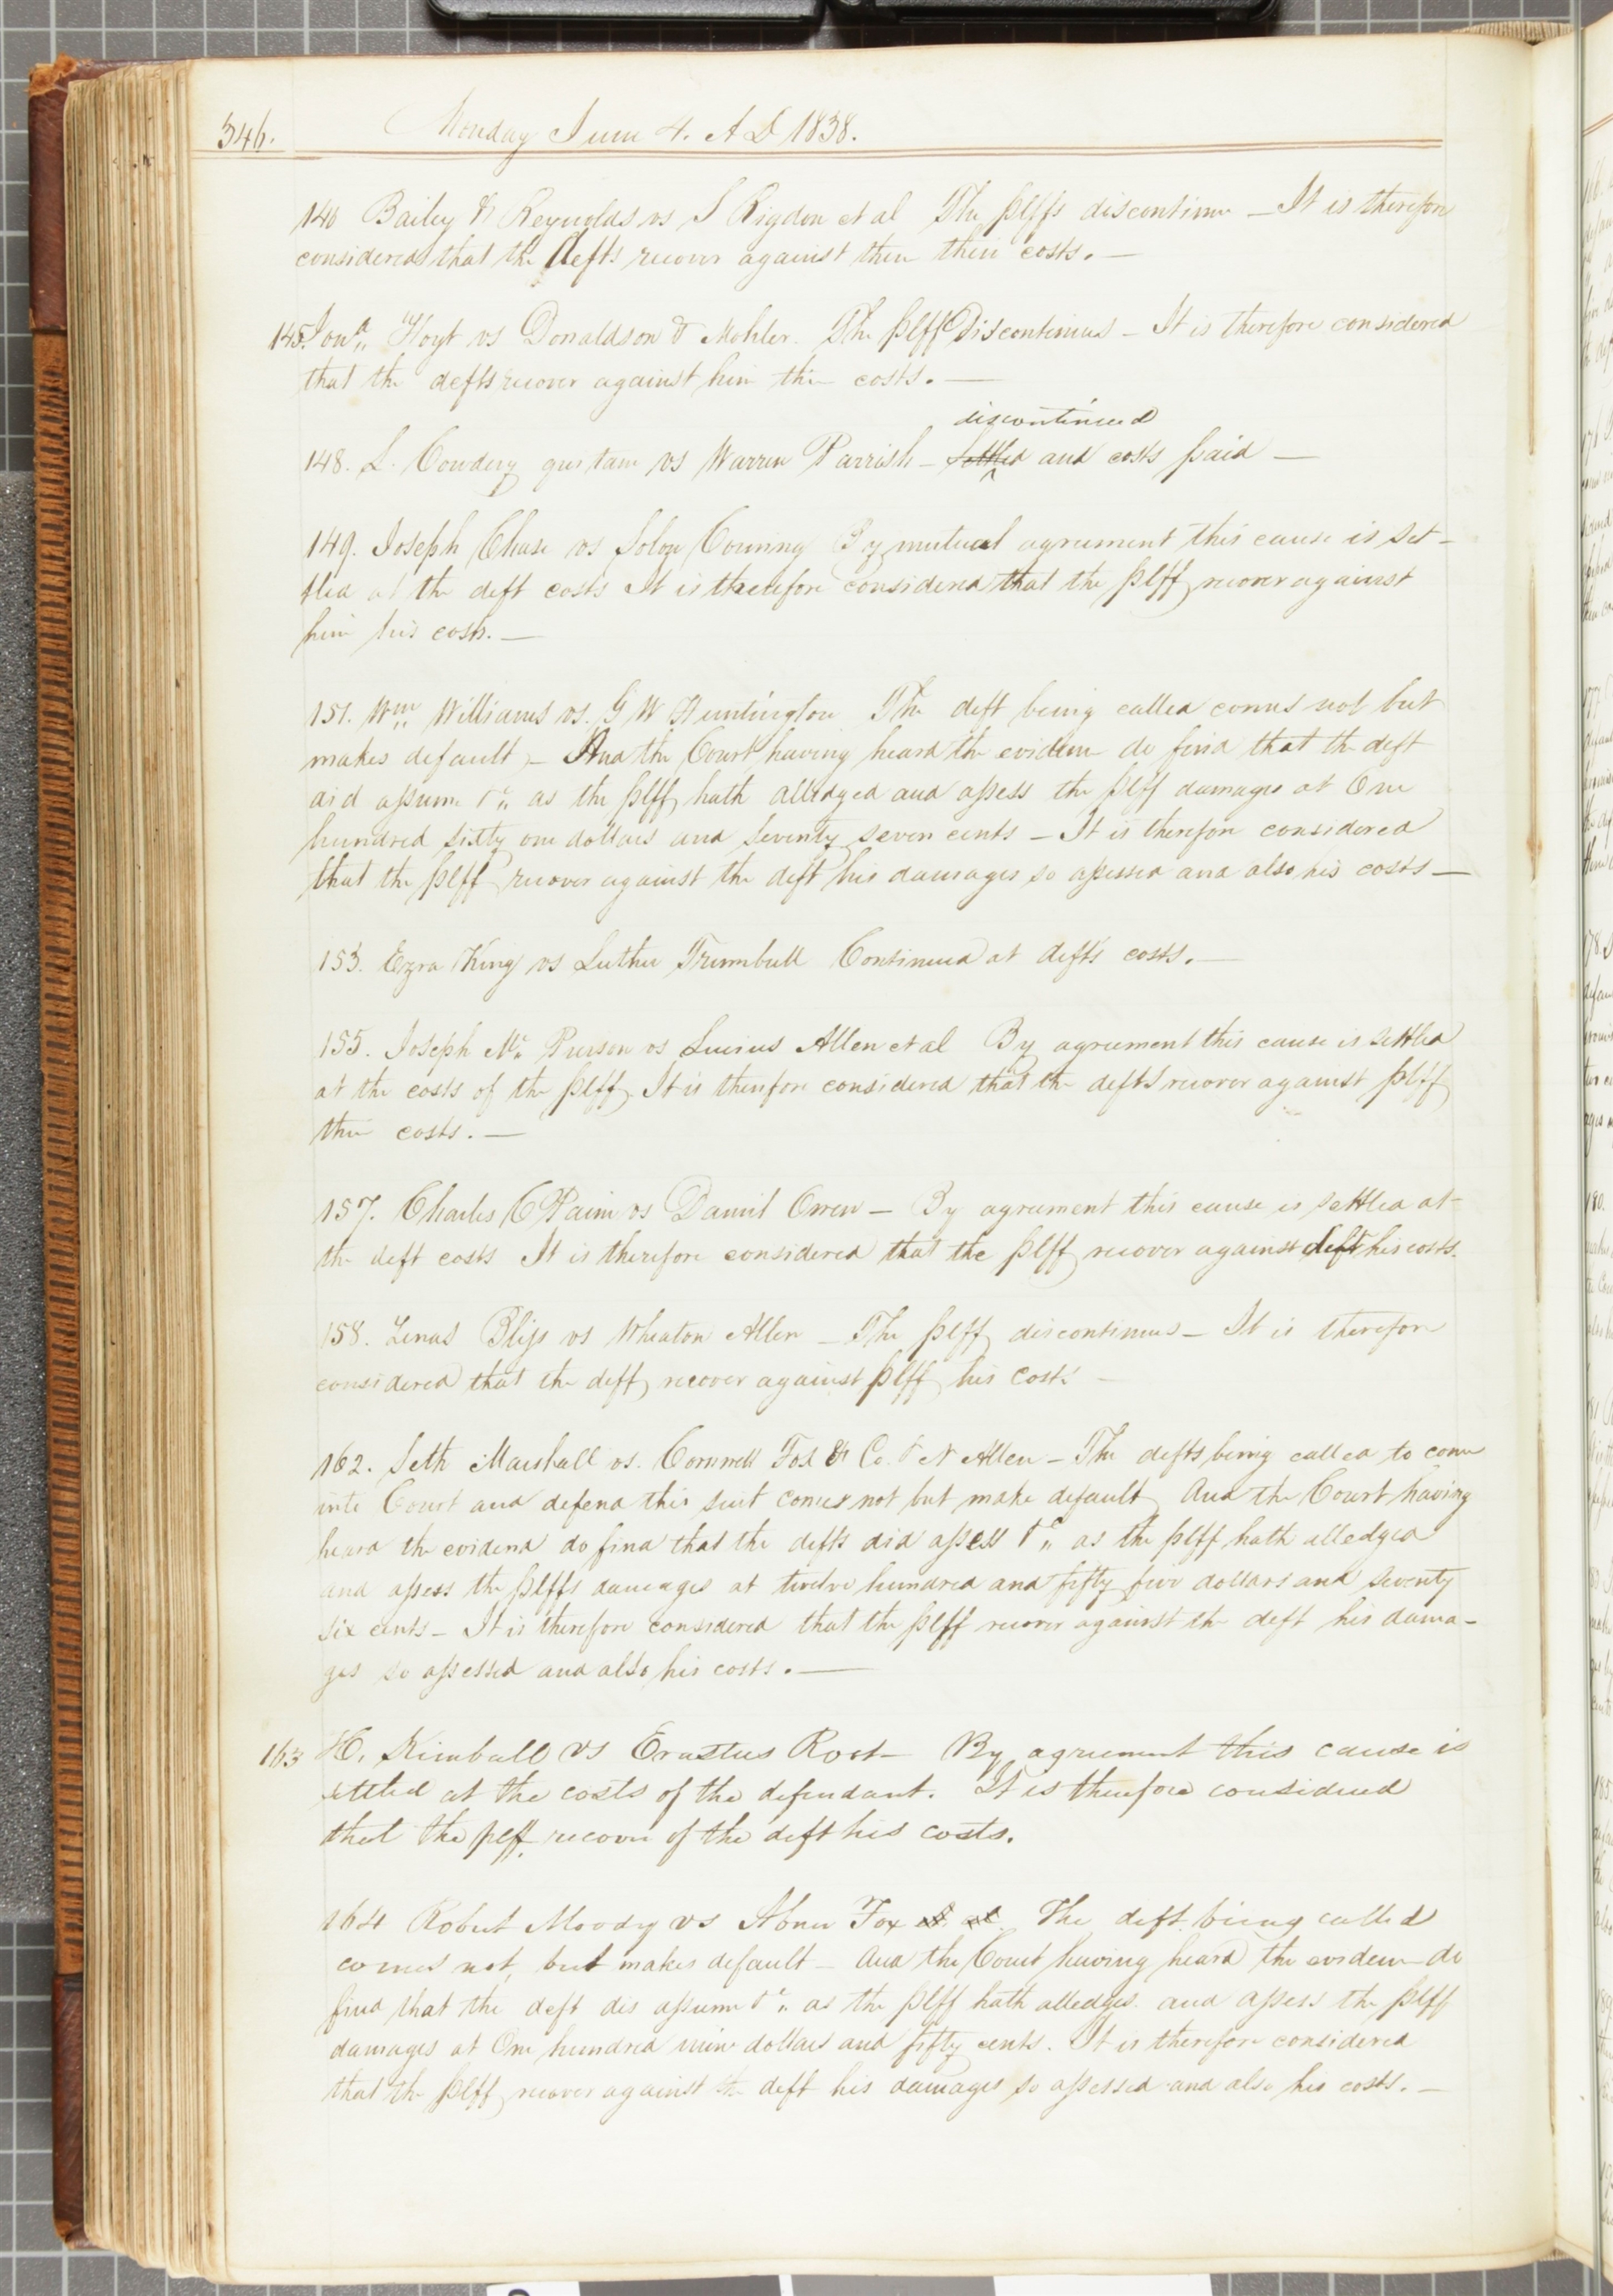 346.
Monday June 4. A D 1838.
140 Bailey & Reynolds vs S Rigdon et al The plffs discontinue — It is therefore
considered that the Defts recover against them their costs. —
145. Jona. Hoyt vs Donaldson & Mohler. The plff Discontinues — It is therefore considered
that the defts recover against him their costs. —
discontinued
148. L. Cowdery qui tam vs Warren Parrish — settled and costs paid —
149. Joseph Chase vs Corning By mutual agreement this cause is set-
tled at the deft costs It is therefore considered that the plff recover against
him his costs. —
151. Wm. Williams vs. G W Huntington The deft being called comes not but
makes default — And the Court having heard the evidence do find that the deft
did assume &c. as the plff hath alledged and assess the plff damages at One
hundred sixty one dollars and seventy seven cents — It is therefore considered
that the plff recover against the deft his damages so assessed and also his costs —
153. Ezra King vs Luther Trumbull Continued at defts costs. —
155. Joseph Mc. Pierson vs Lucius Allen et al By agreement this cause is settled
at the costs of the plff. It is therefore considered that the defts recover against plff
their costs. —
157. Charles C Paine vs Daniel Owen — By agreement this cause is settled at
the deft costs It is therefore considered that the plff recover against deft his costs.
158. Zenas Bliss vs Wheaton Allen — The plff discontinues — It is therefore
considered that the deff recover against plff his costs —
162. Seth Marshall vs. Cornwell Fox & Co. & N Allen — The defts being called to come
into Court and defend this suit comes not but make default And the Court having
heard the evidence do find that the defts did assess &c. as the plff hath alledged
and assess the plffs damages at twelve hundred and fifty five dollars and seventy
six cents — It is therefore considered that the plff recover against the deft his dama-
ges so assessed and also his costs. —
163 H. Kimball vs Erastus Root — By agreement this cause is
settled at the costs of the defendant. It is therefore considered
that the plff. recover of the deft his costs.
164 Robert Moody vs Abner Fox et al. The deft. being called
comes not, but makes default — And the Court having heard the evidence do
find that the deft did assume &c. as the plff hath alledges. and assess the plff
damages at One hundred nine dollars and fifty cents. It is therefore considered
that the plff recover against the deft his damages so assessed and also his costs. —